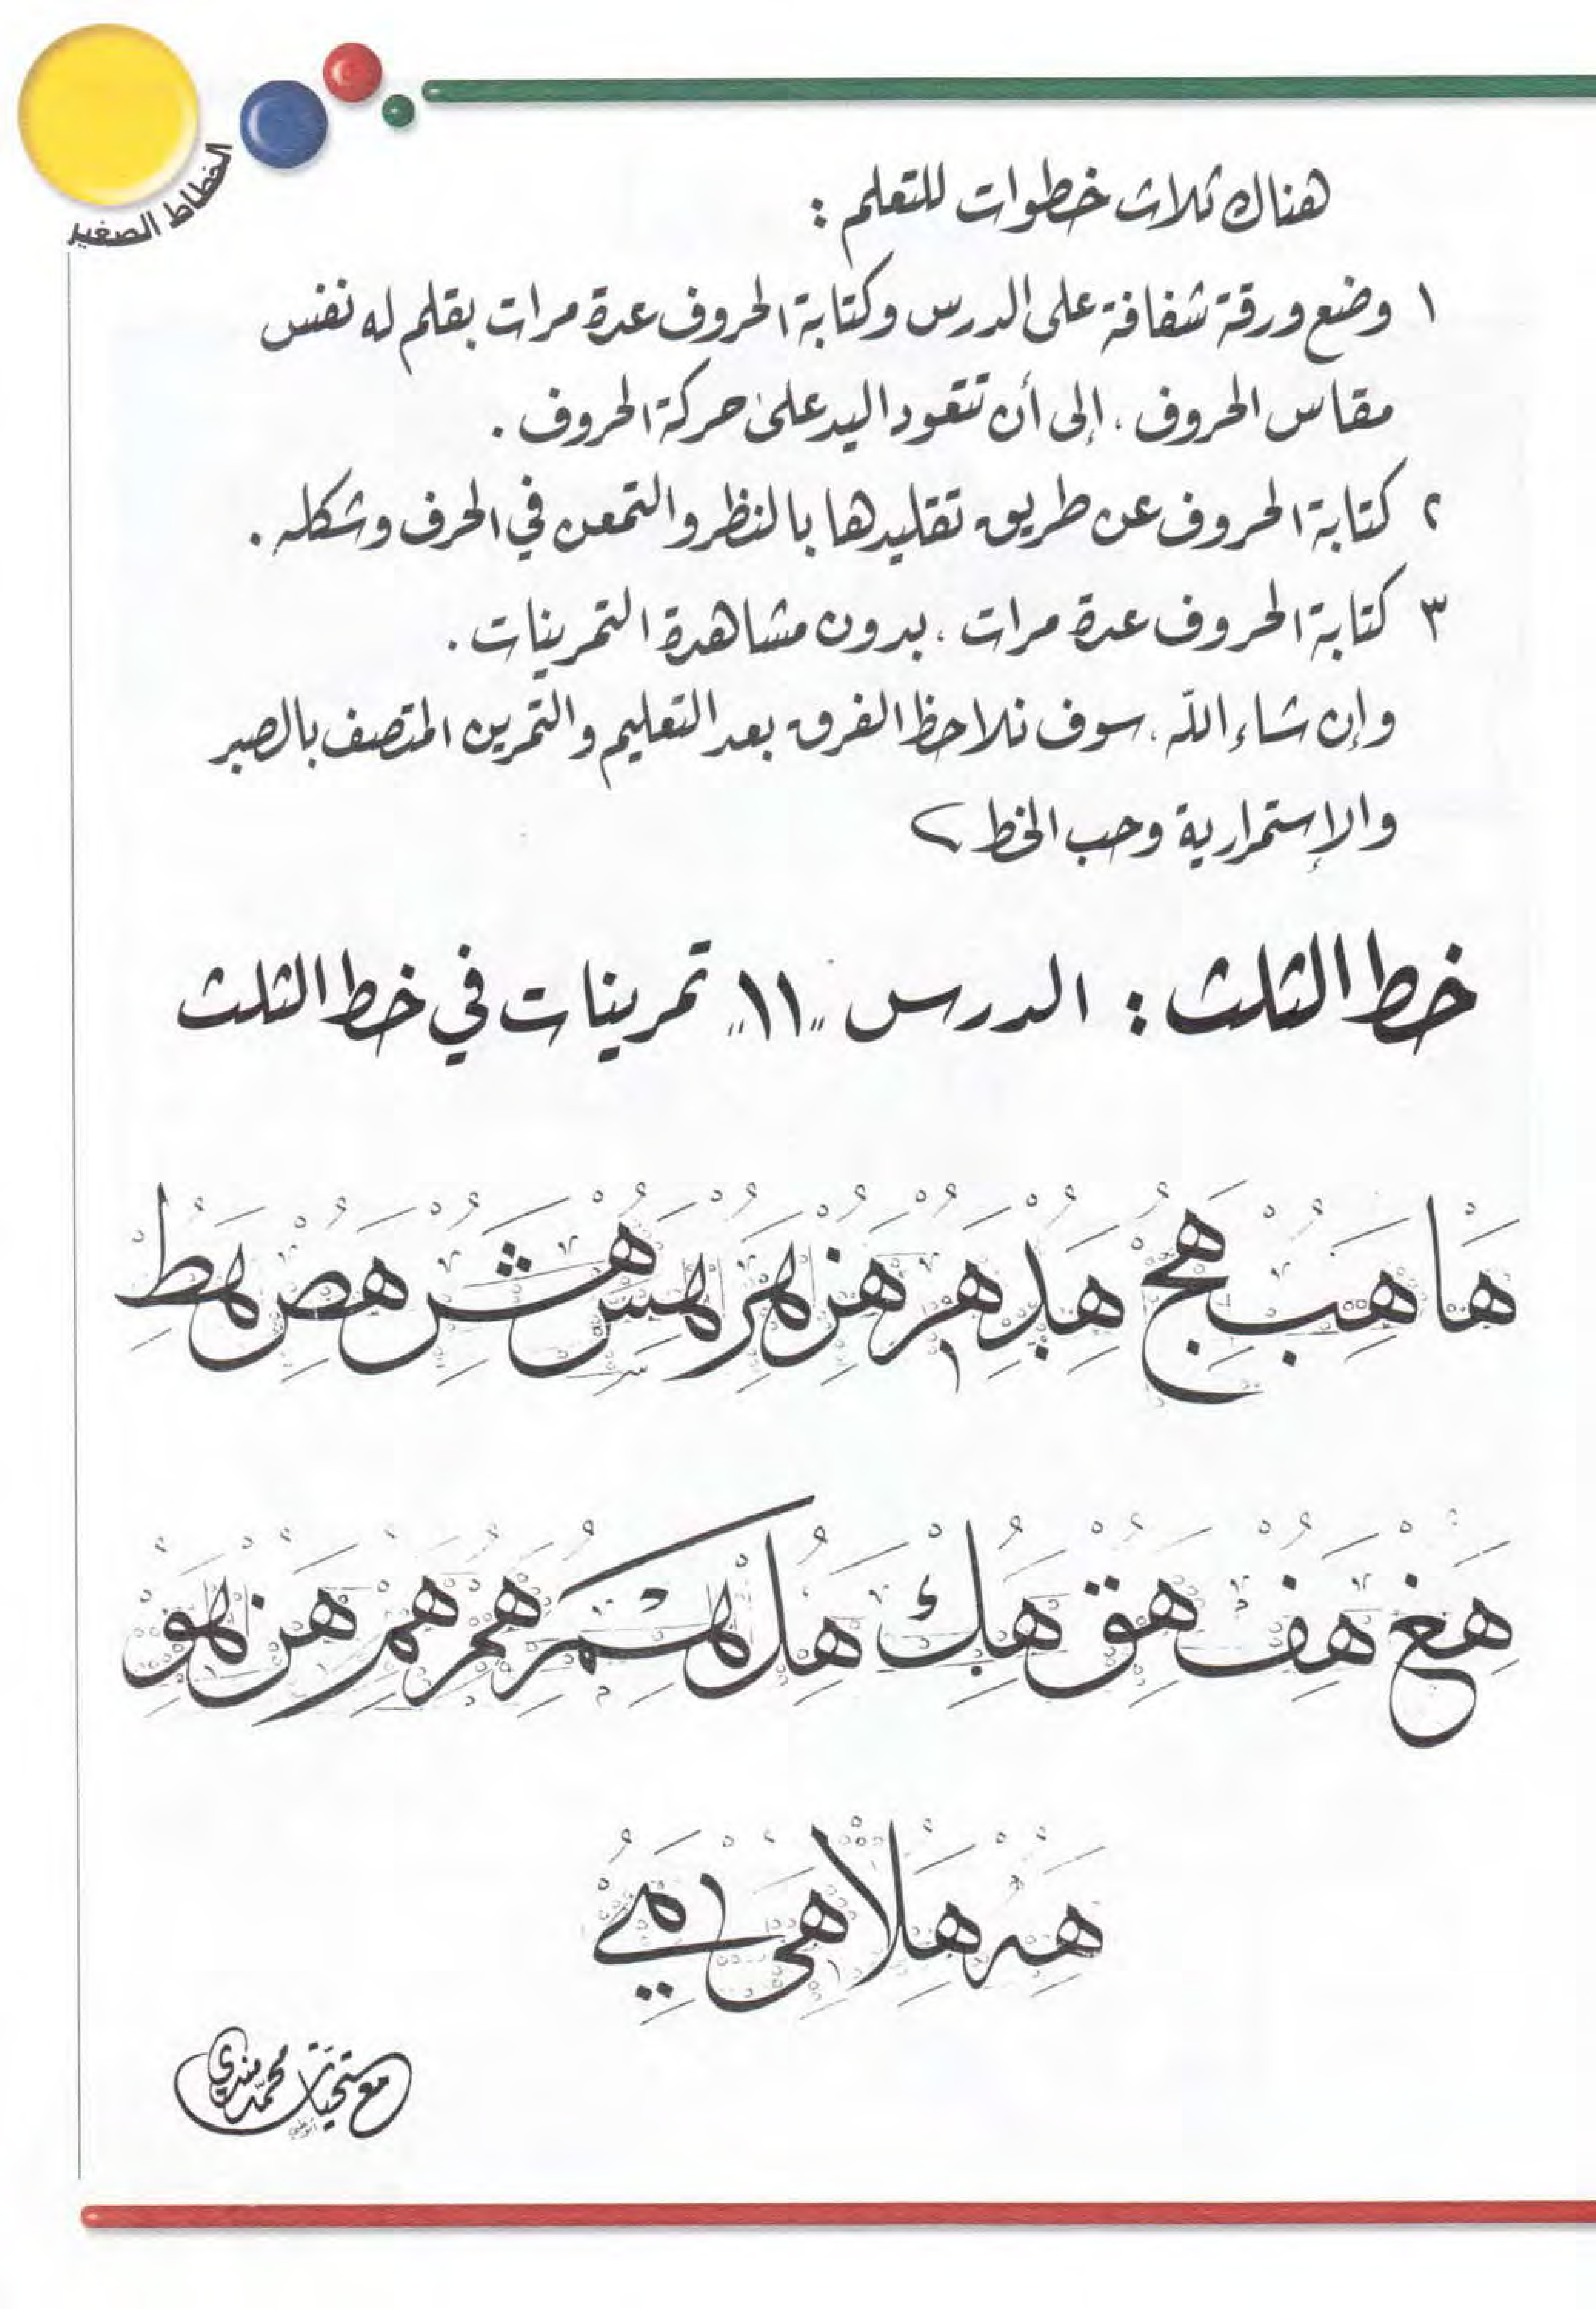 الخطاط الصغير
هناك ثلاث خطوات للتعلم :
١ وضع ورقة شفافة على الدرس وكتابة الحروف عدة مرات بقلم له نفس
مقاس الحروف ، إلى أن تتعود اليد على حركة الحروف .
٢ كتابة الحروف عن طريق تقليدها بالنظر والتمعن في الحرف وشكله .
٣ كتابة الحروف عدة مرات ، بدون مشاهدة التمرينات .
وإن شاء اللّه ، سوف نلاحظ الفرق بعد التعليم والتمرين المتصف بالصبر
والإستمرارية وحب الخط
خط الثلث : الدرس "١١" تمرينات في خط الثلث
ها هب هج هد هر هز هر هس هش هص هط
هغ هف هق هك هل هم هم هم هن هو
هه هلا هى هي
مع تحيات محمد مندي